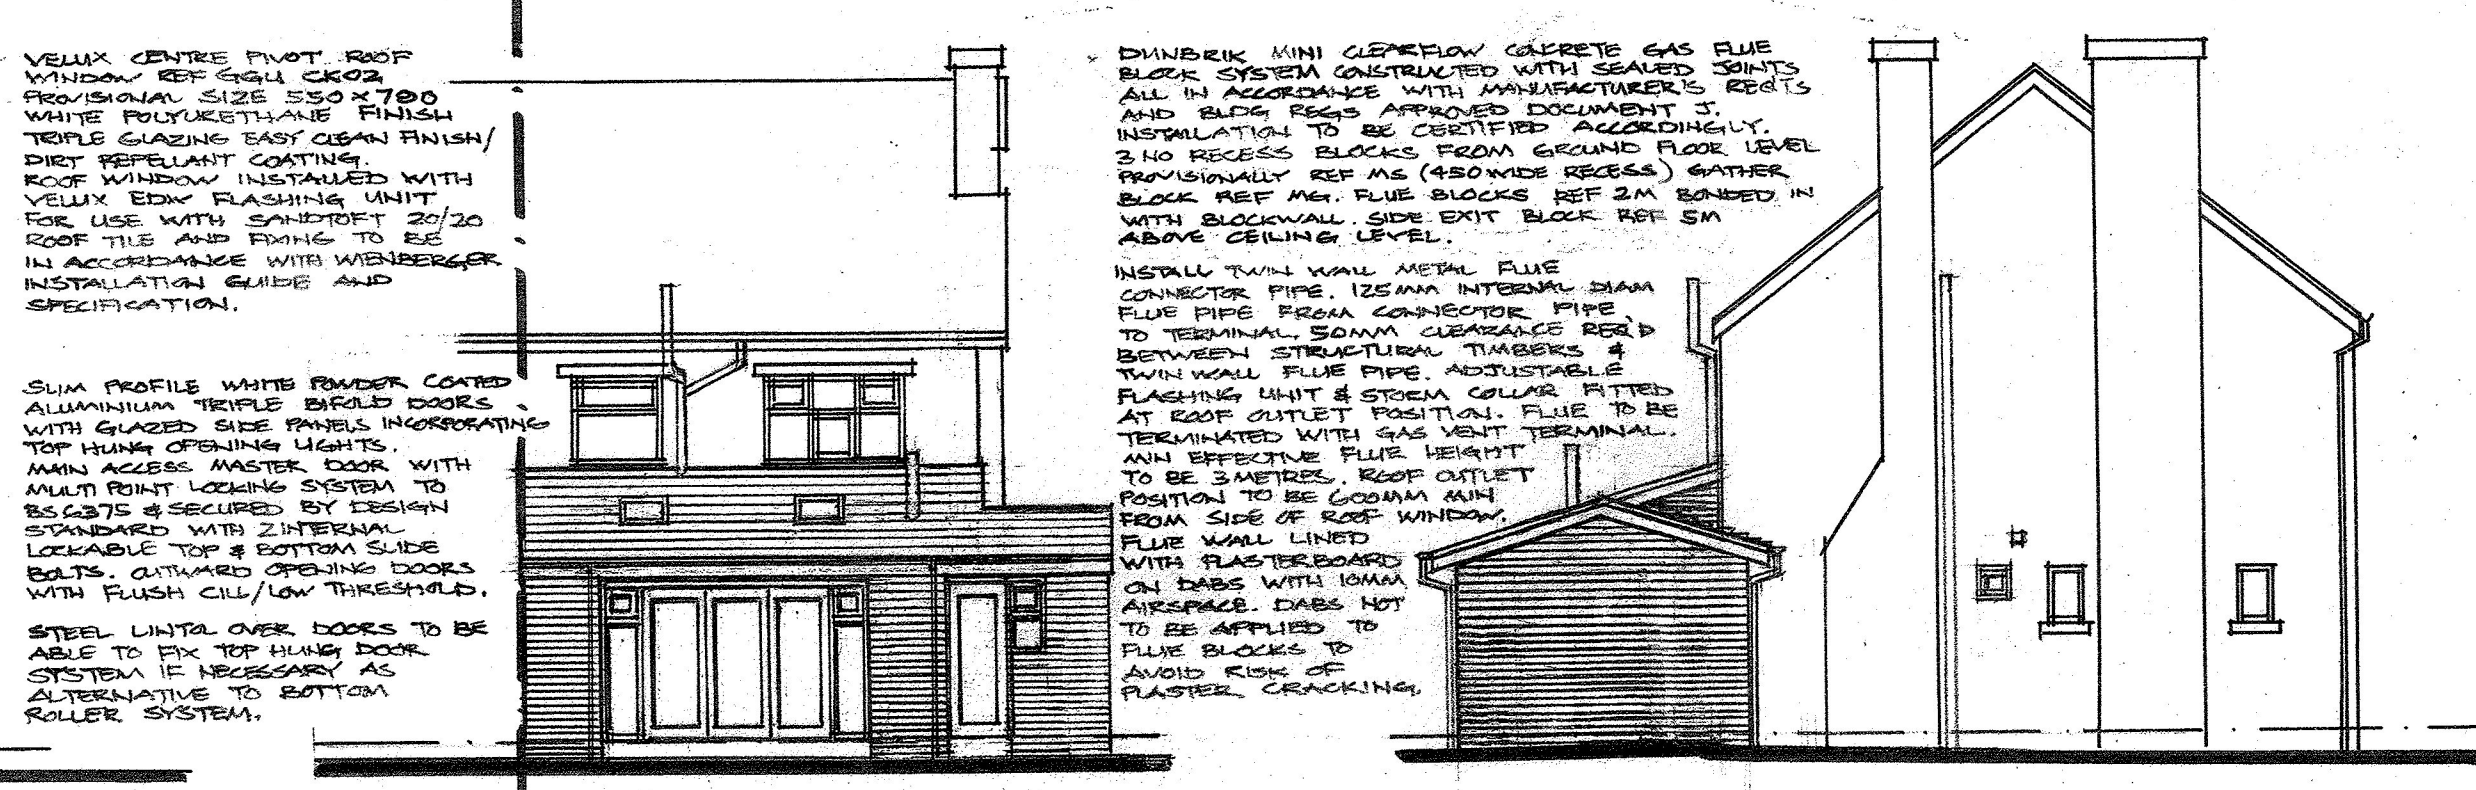 VELUX CENTRE PIVOT ROOF
WINDOW REF GGU CK02
PROVISIONAL SIZE 550 x 780
WHITE POLYURETHANE FINISH
TRIPLE GLAZING EASY CLEAN FINISH/
DIRT REPELLANT COATING.
ROOF WINDOW INSTALLED WITH
VELUX EDW FLASHING UNIT
FOR USE WITH SANDTOFT 20/20
ROOF TILE AND FIXING TO BE
IN ACCORDANCE WITH WIENBERGER
INSTALLATION GUIDE AND
SPECIFICATION.
SLIM PROFILE WHITE POWDER COATED
ALUMINIUM TRIPLE BIFOLD DOORS
WITH GLAZED SIDE PANELS INCORPORATING
TOP HUNG OPENING LIGHTS.
MAIN ACCESS MASTER DOOR WITH
MULTI POINT LOCKING SYSTEM TO
BS 6375 & SECURED BY DESIGN
STANDARD WITH 2 INTERNAL
LOCKABLE TOP & BOTTOM SLIDE
BOLTS. OUTWARD OPENING DOORS
WITH FLUSH CILL/LOW THRESHOLD.
STEEL LINTOL OVER DOORS TO BE
ABLE TO FIX TOP HUNG DOOR
SYSTEM IF NECESSARY AS
ALTERNATIVE TO BOTTOM
ROLLER SYSTEM.
DUNBRIK MINI CLEARFLOW CONCRETE GAS FLUE
BLOCK SYSTEM CONSTRUCTED WITH SEALED JOINTS
ALL IN ACCORDANCE WITH MANUFACTURER'S REQTS
AND BLDG REGS APPROVED DOCUMENT J.
INSTALLATION TO BE CERTIFIED ACCORDINGLY.
3 NO RECESS BLOCKS FROM GROUND FLOOR LEVEL
PROVISIONALLY REF MS (450 WIDE RECESS) GATHER
BLOCK REF MG. FLUE BLOCKS REF 2M BONDED IN
WITH BLOCKWALL. SIDE EXIT BLOCK REF 5M
ABOVE CEILING LEVEL.
INSTALL TWIN WALL METAL FLUE
CONNECTOR PIPE. 125MM INTERNAL DIAM
FLUE PIPE FROM CONNECTOR PIPE
TO TERMINAL. 50MM CLEARANCE REQ'D
BETWEEN STRUCTURAL TIMBERS &
TWIN WALL FLUE PIPE. ADJUSTABLE
FLASHING UNIT & STORM COLLAR FITTED
AT ROOF OUTLET POSITION. FLUE TO BE
TERMINATED WITH GAS VENT TERMINAL.
MIN EFFECTIVE FLUE HEIGHT
TO BE 3 METRES. ROOF OUTLET
POSITION TO BE 600MM MIN
FROM SIDE OF ROOF WINDOW.
FLUE WALL LINED
WITH PLASTERBOARD
ON DABS WITH 10MM
AIRSPACE. DABS NOT
TO BE APPLIED TO
FLUE BLOCKS TO
AVOID RISK OF
PLASTER CRACKING.